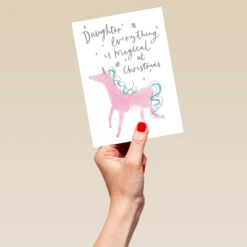 Daughter Everything
is Magical
at
Christmas